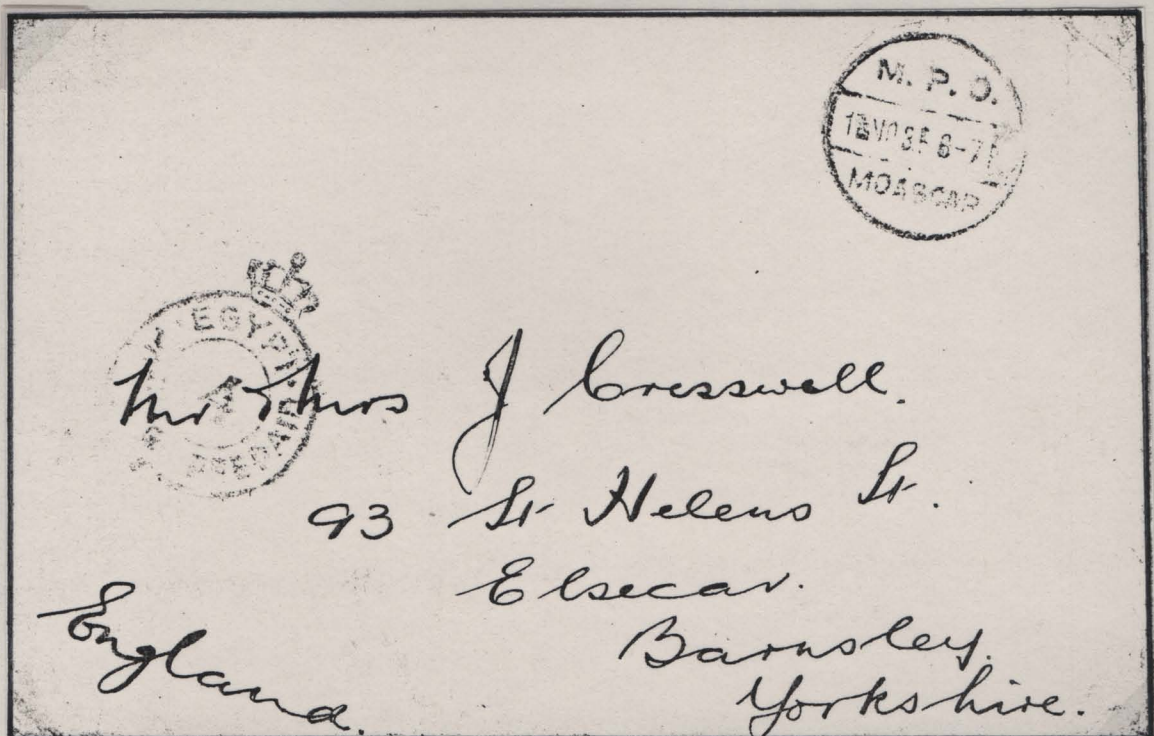 M. P. O.
MOASCAR
EGYPT
PREPAID
Mr & Mrs J Cresswell.
93 St Helens St.
Elsecar.
Barnsley.
Yorkshire.
England.